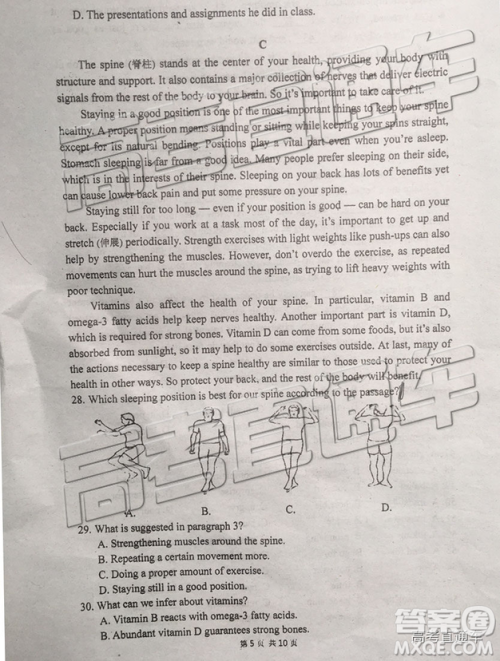 D. The presentations and assignments he did in class.
C
The spine (脊柱) stands at the center of your health, providing your body with
structure and support. It also contains a major collection of nerves that deliver electric
signals from the rest of the body to your brain. So it's important to take care of it.
Staying in a good position is one of the most important things to keep your spine
healthy. A proper position means standing or sitting while keeping your spins straight,
except for its natural bending. Positions play a vital part even when you're asleep.
Stomach sleeping is far from a good idea. Many people prefer sleeping on their side,
which is in the interests of their spine. Sleeping on your back has lots of benefits yet
can cause lower back pain and put some pressure on your spine.
Staying still for too long — even if your position is good — can be hard on your
back. Especially if you work at a task most of the day, it's important to get up and
stretch (伸展) periodically. Strength exercises with light weights like push-ups can also
help by strengthening the muscles. However, don't overdo the exercise, as repeated
movements can hurt the muscles around the spine, as trying to lift heavy weights with
poor technique.
Vitamins also affect the health of your spine. In particular, vitamin B and
omega-3 fatty acids help keep nerves healthy. Another important part is vitamin D,
which is required for strong bones. Vitamin D can come from some foods, but it's also
absorbed from sunlight, so it may help to do some exercises outside. At last, many of
the actions necessary to keep a spine healthy are similar to those used to protect your
health in other ways. So protect your back, and the rest of the body will benefit.
28. Which sleeping position is best for our spine according to the passage?
A. B. C. D.
29. What is suggested in paragraph 3?
A. Strengthening muscles around the spine.
B. Repeating a certain movement more.
C. Doing a proper amount of exercise.
D. Staying still in a good position.
30. What can we infer about vitamins?
A. Vitamin B reacts with omega-3 fatty acids.
B. Abundant vitamin D guarantees strong bones.
第 5 页 共 10 页
高考直通车
高考直通车
高考直通车
答案圈
MXQE.COM